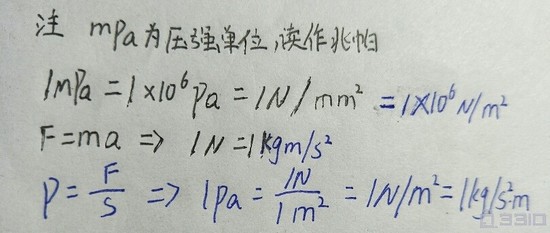 注 mPa为压强单位,读作兆帕
1mPa=1×10⁶Pa=1N/mm²=1×10⁶N/m²
F=ma => 1N=1kgm/s²
P=F/S => 1Pa=1N/1m²=1N/m²=1kg/s²·m
3310